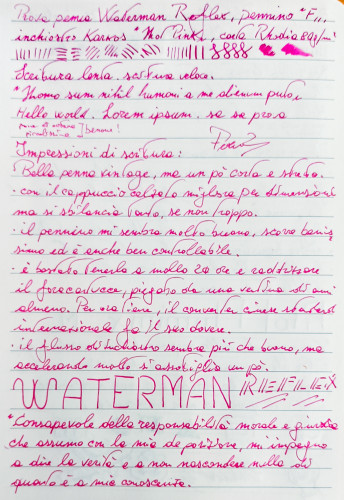 Prova penna Waterman Reflex, pennino "F",
inchiostro Karkos "Hot Pink", carta Rhodia 80g/m²
Scrittura lenta, scrittura veloce.
"Homo sum nihil humani a me alienum puto"
Hello world. Lorem ipsum. sa sa prova
prova di scrittura
piccolissima ] benone!
Impressioni di scrittura:
Bella penna vintage, ma un pò corta e stretta.
· con il cappuccio calzato migliora per dimensioni
ma si sbilancia tanto, se non troppo.
· il pennino mi sembra molto buono, scorre benis
simo ed è anche ben controllabile.
· è bastato tenerla a mollo 24 ore e raddrizzare
il foracartucce, piegato da una ventina di anni
almeno. Per ora tiene, il converter cinese standard
internazionale fa il suo dovere.
· il flusso d'inchiostro sembra più che buono, ma
accelerando molto si assottiglia un pò.
WATERMAN REFLEX
"Consapevole della responsabilità morale e giuridica
che assumo con la mia deposizione, mi impegno
a dire la verità e a non nascondere nulla di
quanto è a mia conoscenza.